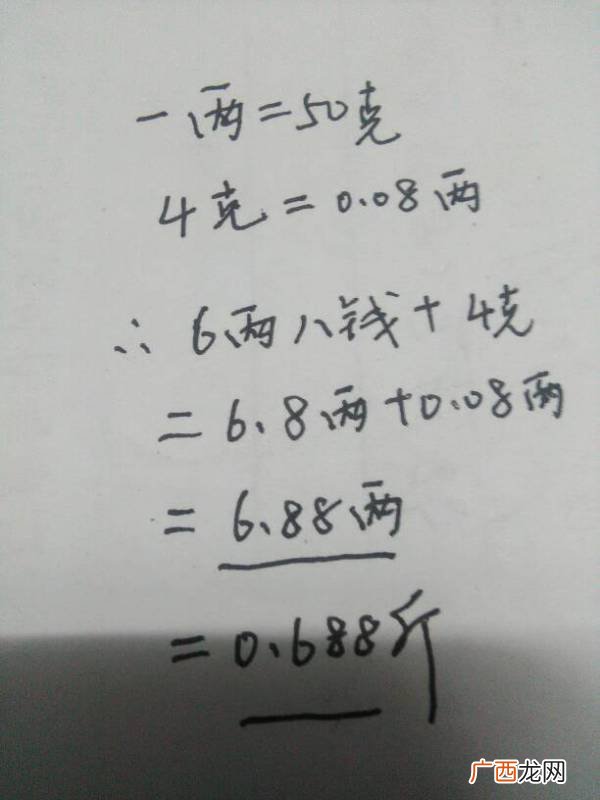 一两=50克
4克=0.08两
∴ 6两八钱+4克
=6.8两+0.08两
=6.88两
=0.688斤
广西龙网